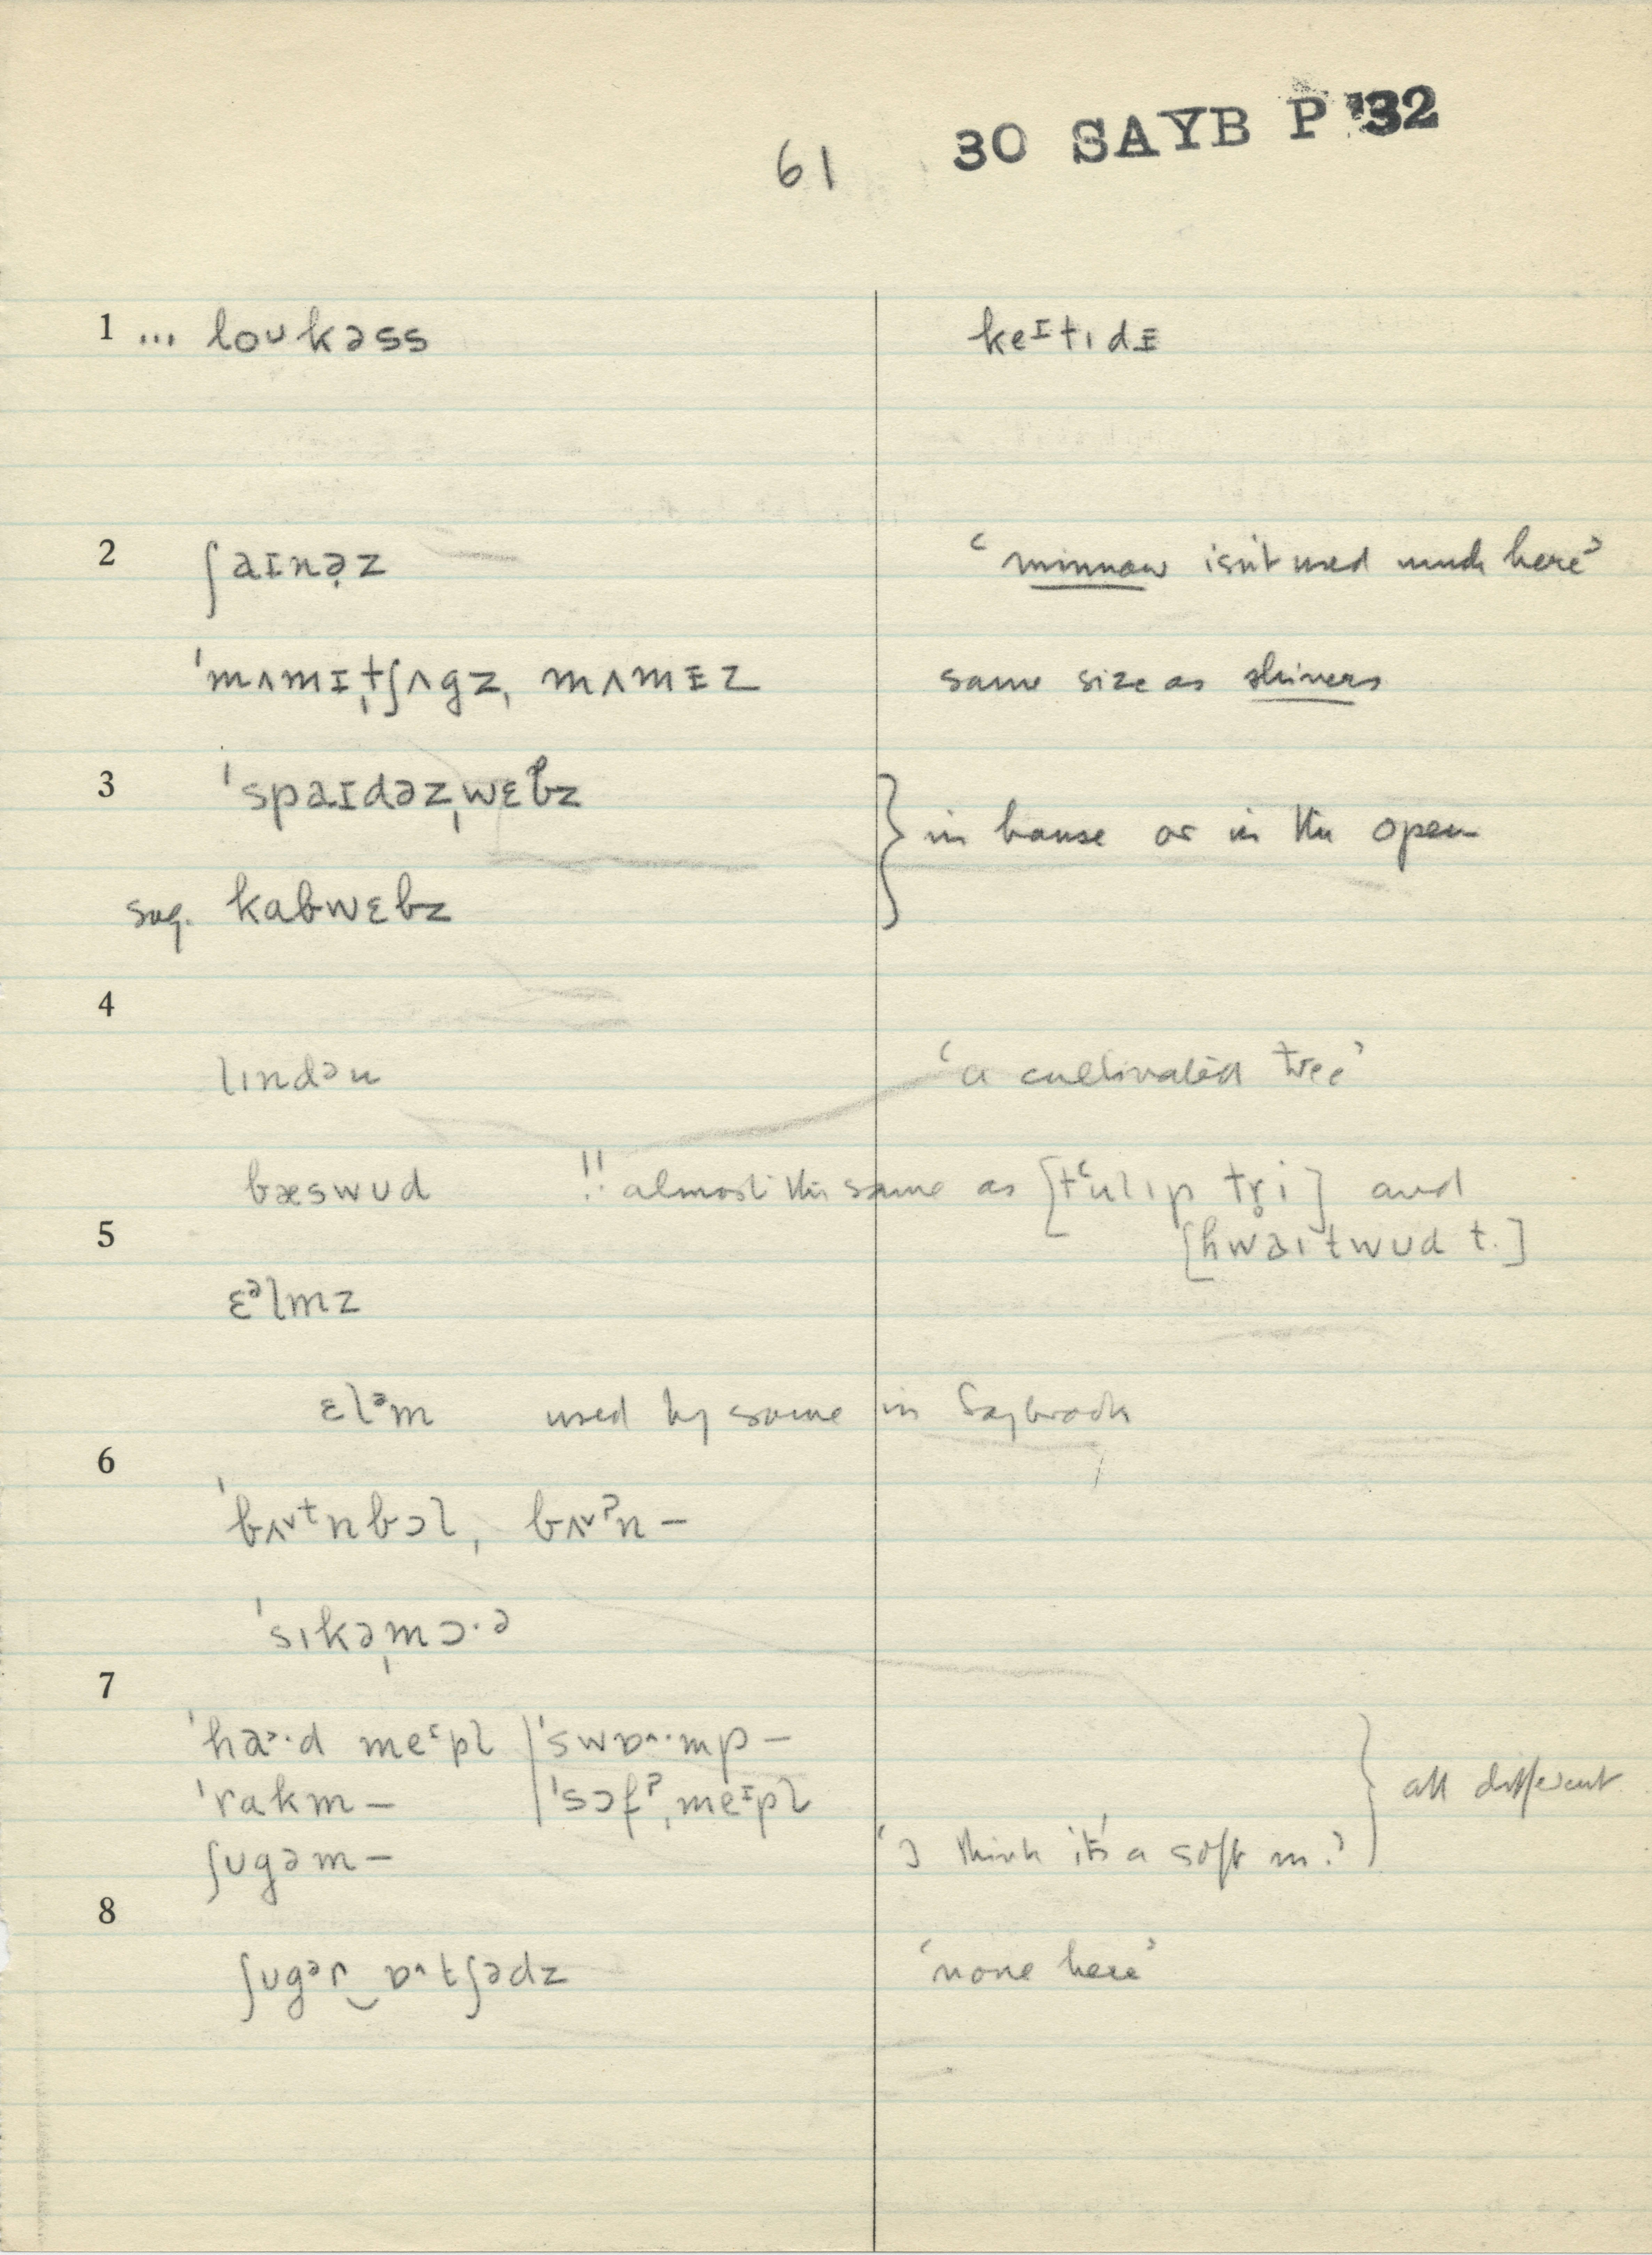 61 30 SAYB P '32
1 ... loᴜkəss keɪtɪdɪ
2 ʃaɪnə̣z ‘minnow isn't used much here’
ˈmʌmɪˌtʃʌgz, mʌmɪz same size as shiners
3 ˈspaɪdəzˌwɛbz
} in house or in the open
sug. kabwɛbz
4
lɪndən ‘a cultivated tree’
bæswud !! almost the same as [tʿulɪp tr̥i] and
5 [hwaɪtwud t.]
ɛᵊlmz
ɛlᵊm used by some in Saybrook
6
ˈbʌ˅ᵗnbɔl, bʌ˅ˀn –
ˈsɪkəˌmɔ·ə
7
ˈha˃·d meᶦpl | ˈswɒ^·mp –
ˈrakm – | ˈsɔfˀˌmeᶦpl } all different
ʃugəm – ‘I think it's a soft m.’
8
ʃugᵊr‿ɒ^tʃədz ‘none here’